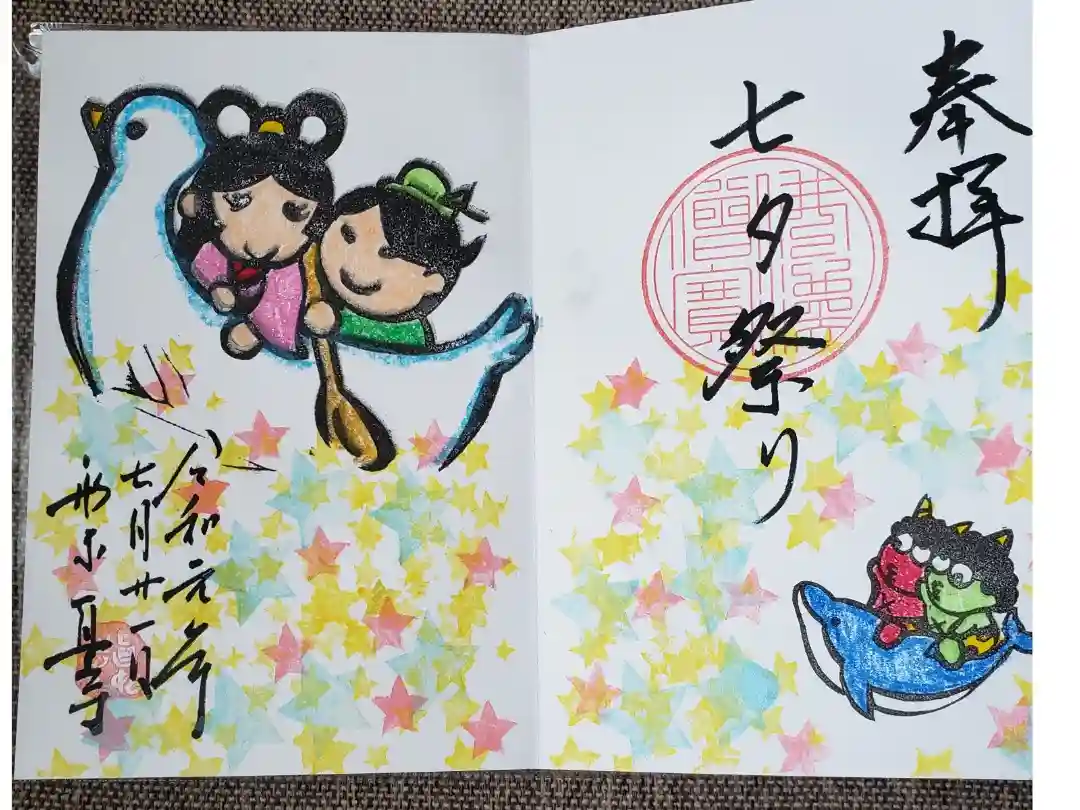 奉拝
七夕祭り
令和元年
七月廿一日